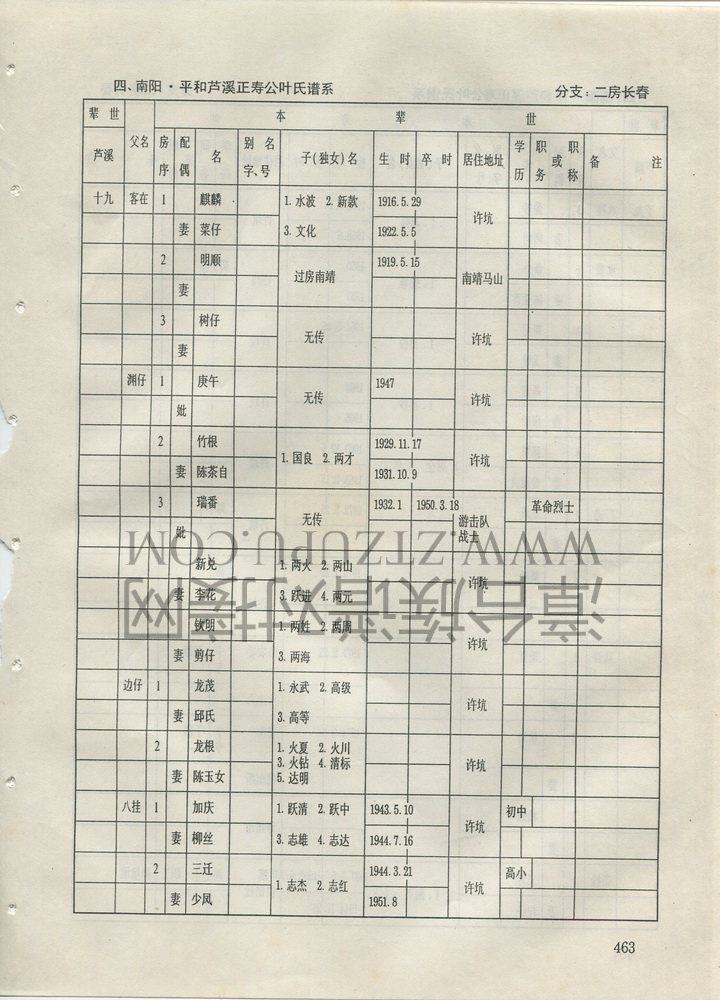 四、南阳·平和芦溪正寿公叶氏谱系 分支：二房长春
辈世 本辈世
芦溪 父名 房序 配偶 名 别名字、号 子(独女)名 生时 卒时 居住地址 学历 职务或职称 备注
十九 客在 1 麒麟 1.水波 2.新款 1916.5.29 许坑
妻 菜仔 3.文化 1922.5.5
2 明顺 过房南靖 1919.5.15 南靖马山
妻
3 树仔 无传 许坑
妻
渊仔 1 庚午 无传 1947 许坑
妣
2 竹根 1.国良 2.两才 1929.11.17 许坑
妻 陈茶自 1931.10.9
3 瑞番 无传 1932.1 1950.3.18 游击队战士 革命烈士
妣
新兑 1.两火 2.两山 许坑
妻 李花 3.跃进 4.两元
钦明 1.两姓 2.两周 许坑
妻 剪仔 3.两海
边仔 1 龙茂 1.永武 2.高级 许坑
妻 邱氏 3.高等
2 龙根 1.火夏 2.火川 许坑
3.火钻 4.清标
妻 陈玉女 5.达明
八挂 1 加庆 1.跃清 2.跃中 1943.5.10 许坑 初中
妻 柳丝 3.志雄 4.志达 1944.7.16
2 三迁 1.志杰 2.志红 1944.3.21 许坑 高小
妻 少凤 1951.8
463
WWW.ZTZUPU.COM
漳台族谱对接网